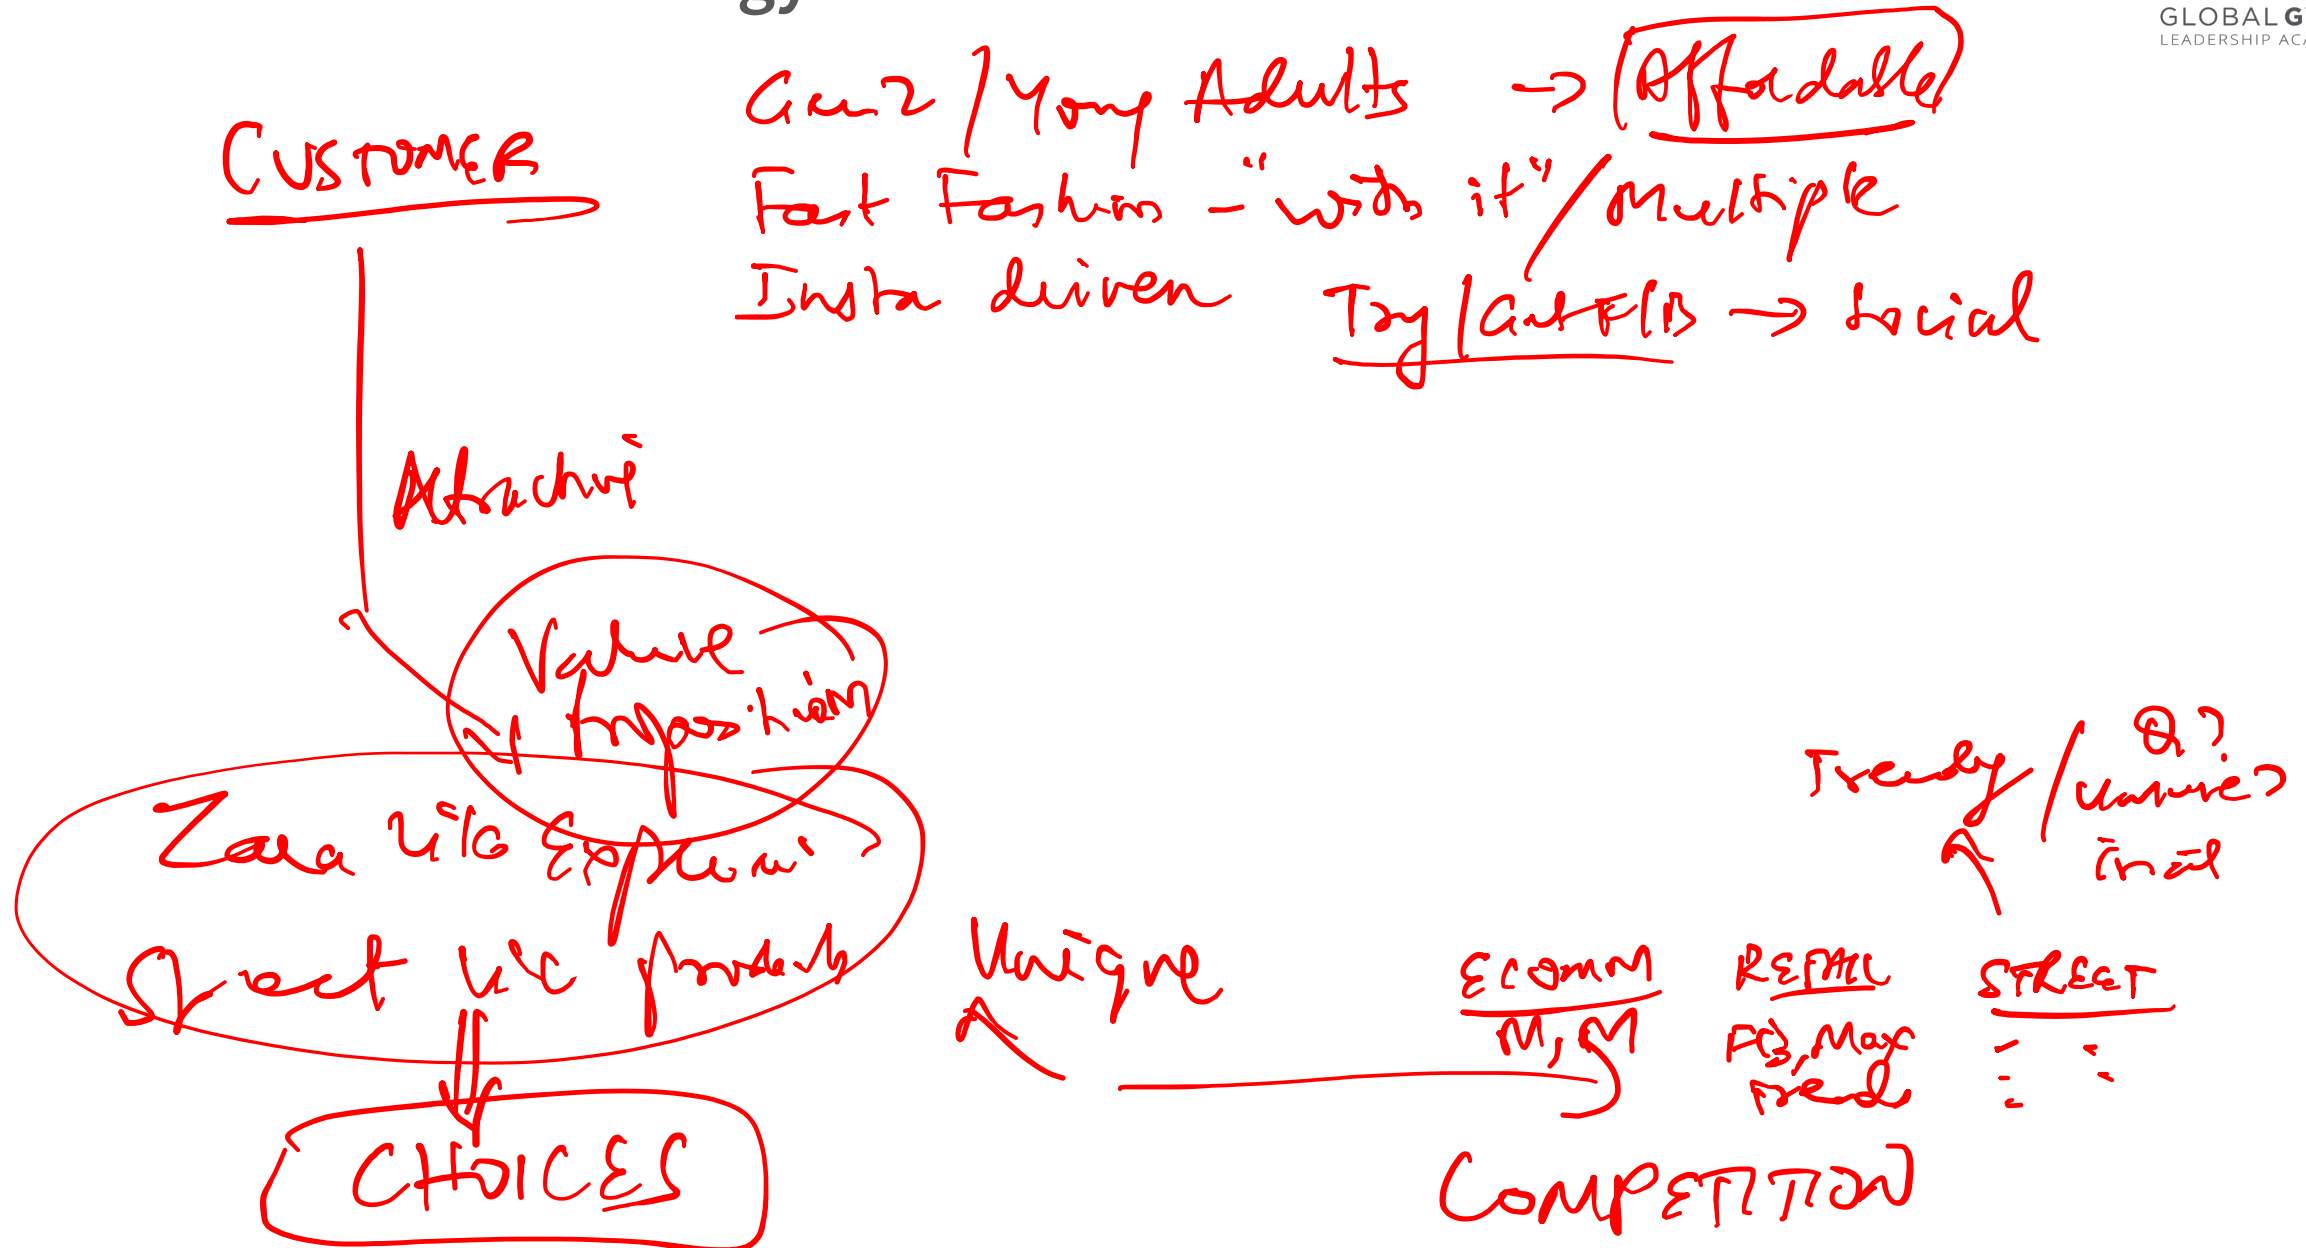 GLOBAL G
LEADERSHIP ACA
CUSTOMER
Gen Z / Young Adults → Affordable
Fast Fashion - "with it" / Multiple
Insta driven Try / → social
Attractive
Value
Proposition
Zara like Experience
great value products
CHOICES
Unique
Trendy / Q?
in
ECOMM RETAIL STREET
M, M Max
Trends
COMPETITION